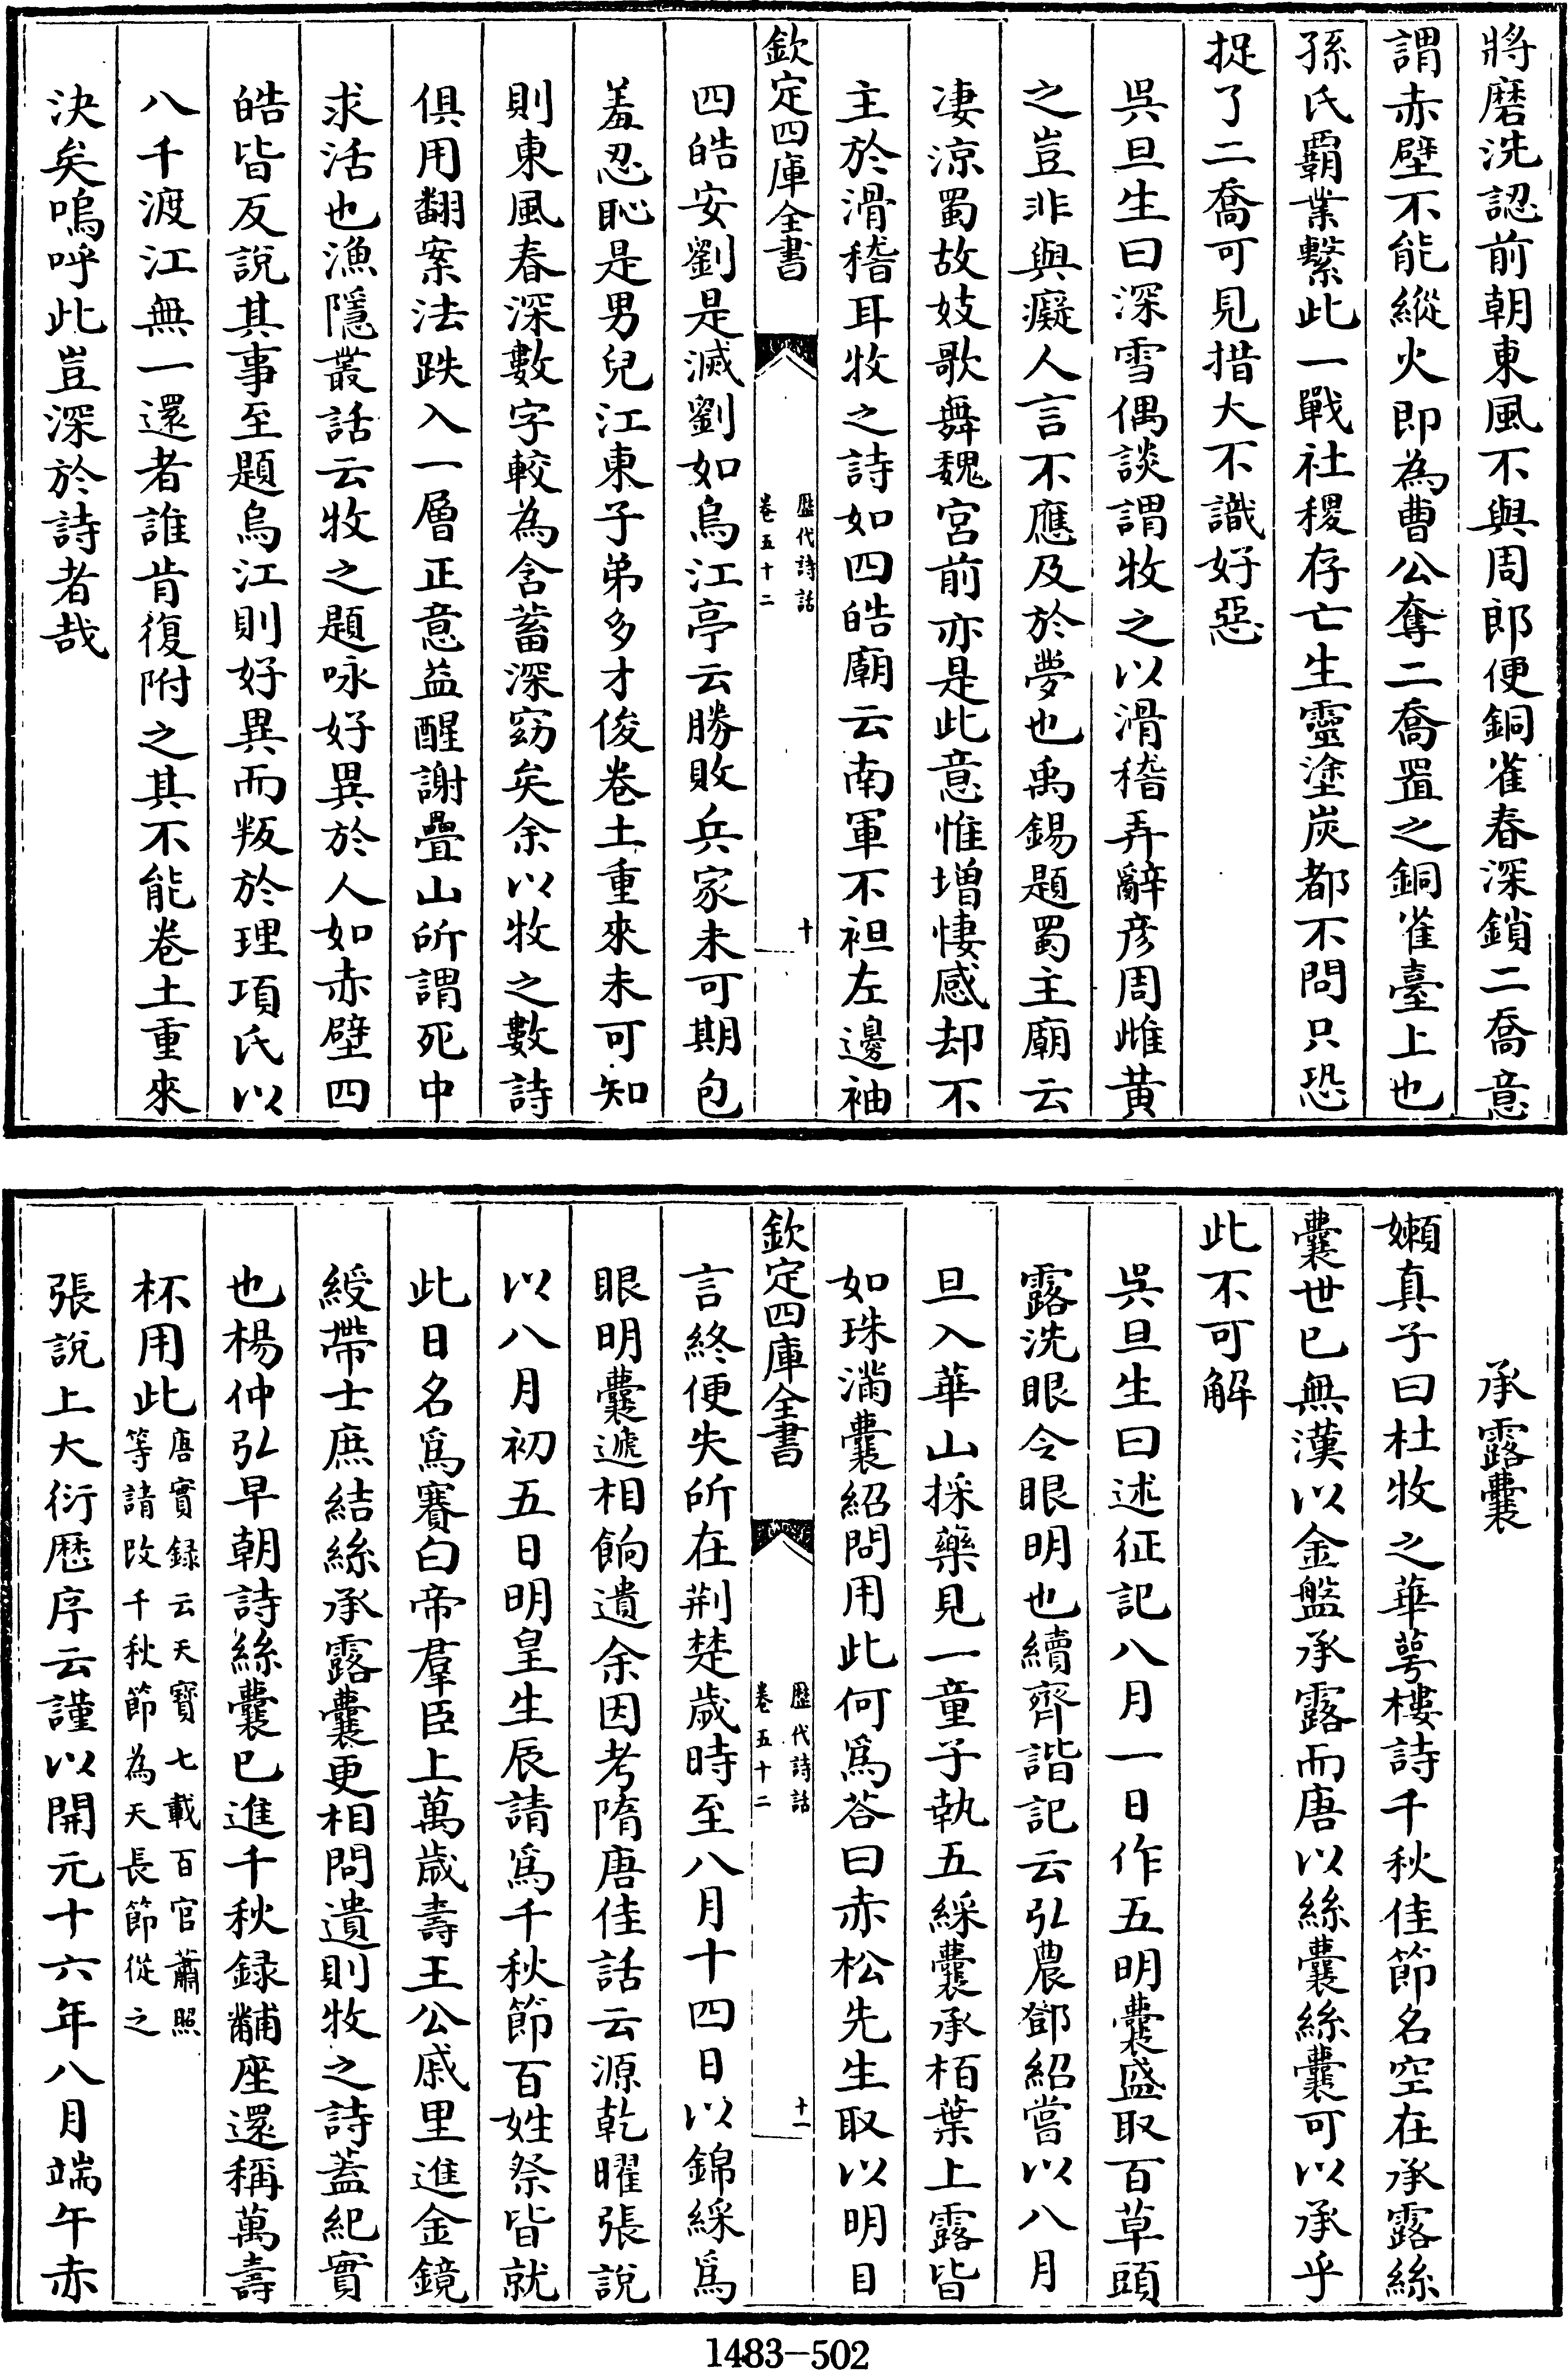 將磨洗認前朝東風不與周郎便銅雀春深鎖二喬意
謂赤壁不能縱火即為曹公奪二喬置之銅雀臺上也
孫氏霸業繫此一戰社稷存亡生靈塗炭都不問只恐
捉了二喬可見措大不識好惡
吳旦生曰深雪偶談謂牧之以滑稽弄辭彥周雌黃
之豈非與癡人言不應及於夢也禹錫題蜀主廟云
淒涼蜀故妓歌舞魏宮前亦是此意惟增悽感却不
主於滑稽耳牧之詩如四皓廟云南軍不袒左邊袖
欽定四庫全書
歷代詩話
卷五十二
十
四皓安劉是滅劉如烏江亭云勝敗兵家未可期包
羞忍恥是男兒江東子弟多才俊卷土重來未可知
則東風春深數字較為含蓄深窈矣余以牧之數詩
俱用翻案法跌入一層正意益醒謝疊山所謂死中
求活也漁隱叢話云牧之題咏好異於人如赤壁四
皓皆反說其事至題烏江則好異而叛於理項氏以
八千渡江無一還者誰肯復附之其不能卷土重來
決矣嗚呼此豈深於詩者哉
承露囊
嬾真子曰杜牧之華萼樓詩千秋佳節名空在承露絲
囊世已無漢以金盤承露而唐以絲囊絲囊可以承乎
此不可解
吳旦生曰述征記八月一日作五明囊盛取百草頭
露洗眼令眼明也續齊諧記云弘農鄧紹嘗以八月
旦入華山採藥見一童子執五綵囊承栢葉上露皆
如珠滿囊紹問用此何為荅曰赤松先生取以明目
欽定四庫全書
歷代詩話
卷五十二
十一
言終便失所在荆楚歲時至八月十四日以錦綵為
眼明囊遞相餉遺余因考隋唐佳話云源乾曜張說
以八月初五日明皇生辰請為千秋節百姓祭皆就
此日名為賽白帝羣臣上萬歲壽王公戚里進金鏡
綬帶士庶結絲承露囊更相問遺則牧之詩蓋紀實
也楊仲弘早朝詩絲囊已進千秋録黼座還稱萬壽
杯用此唐實録云天寶七載百官蕭照等請改千秋節為天長節從之
張說上大衍厯序云謹以開元十六年八月端午赤
1483-502